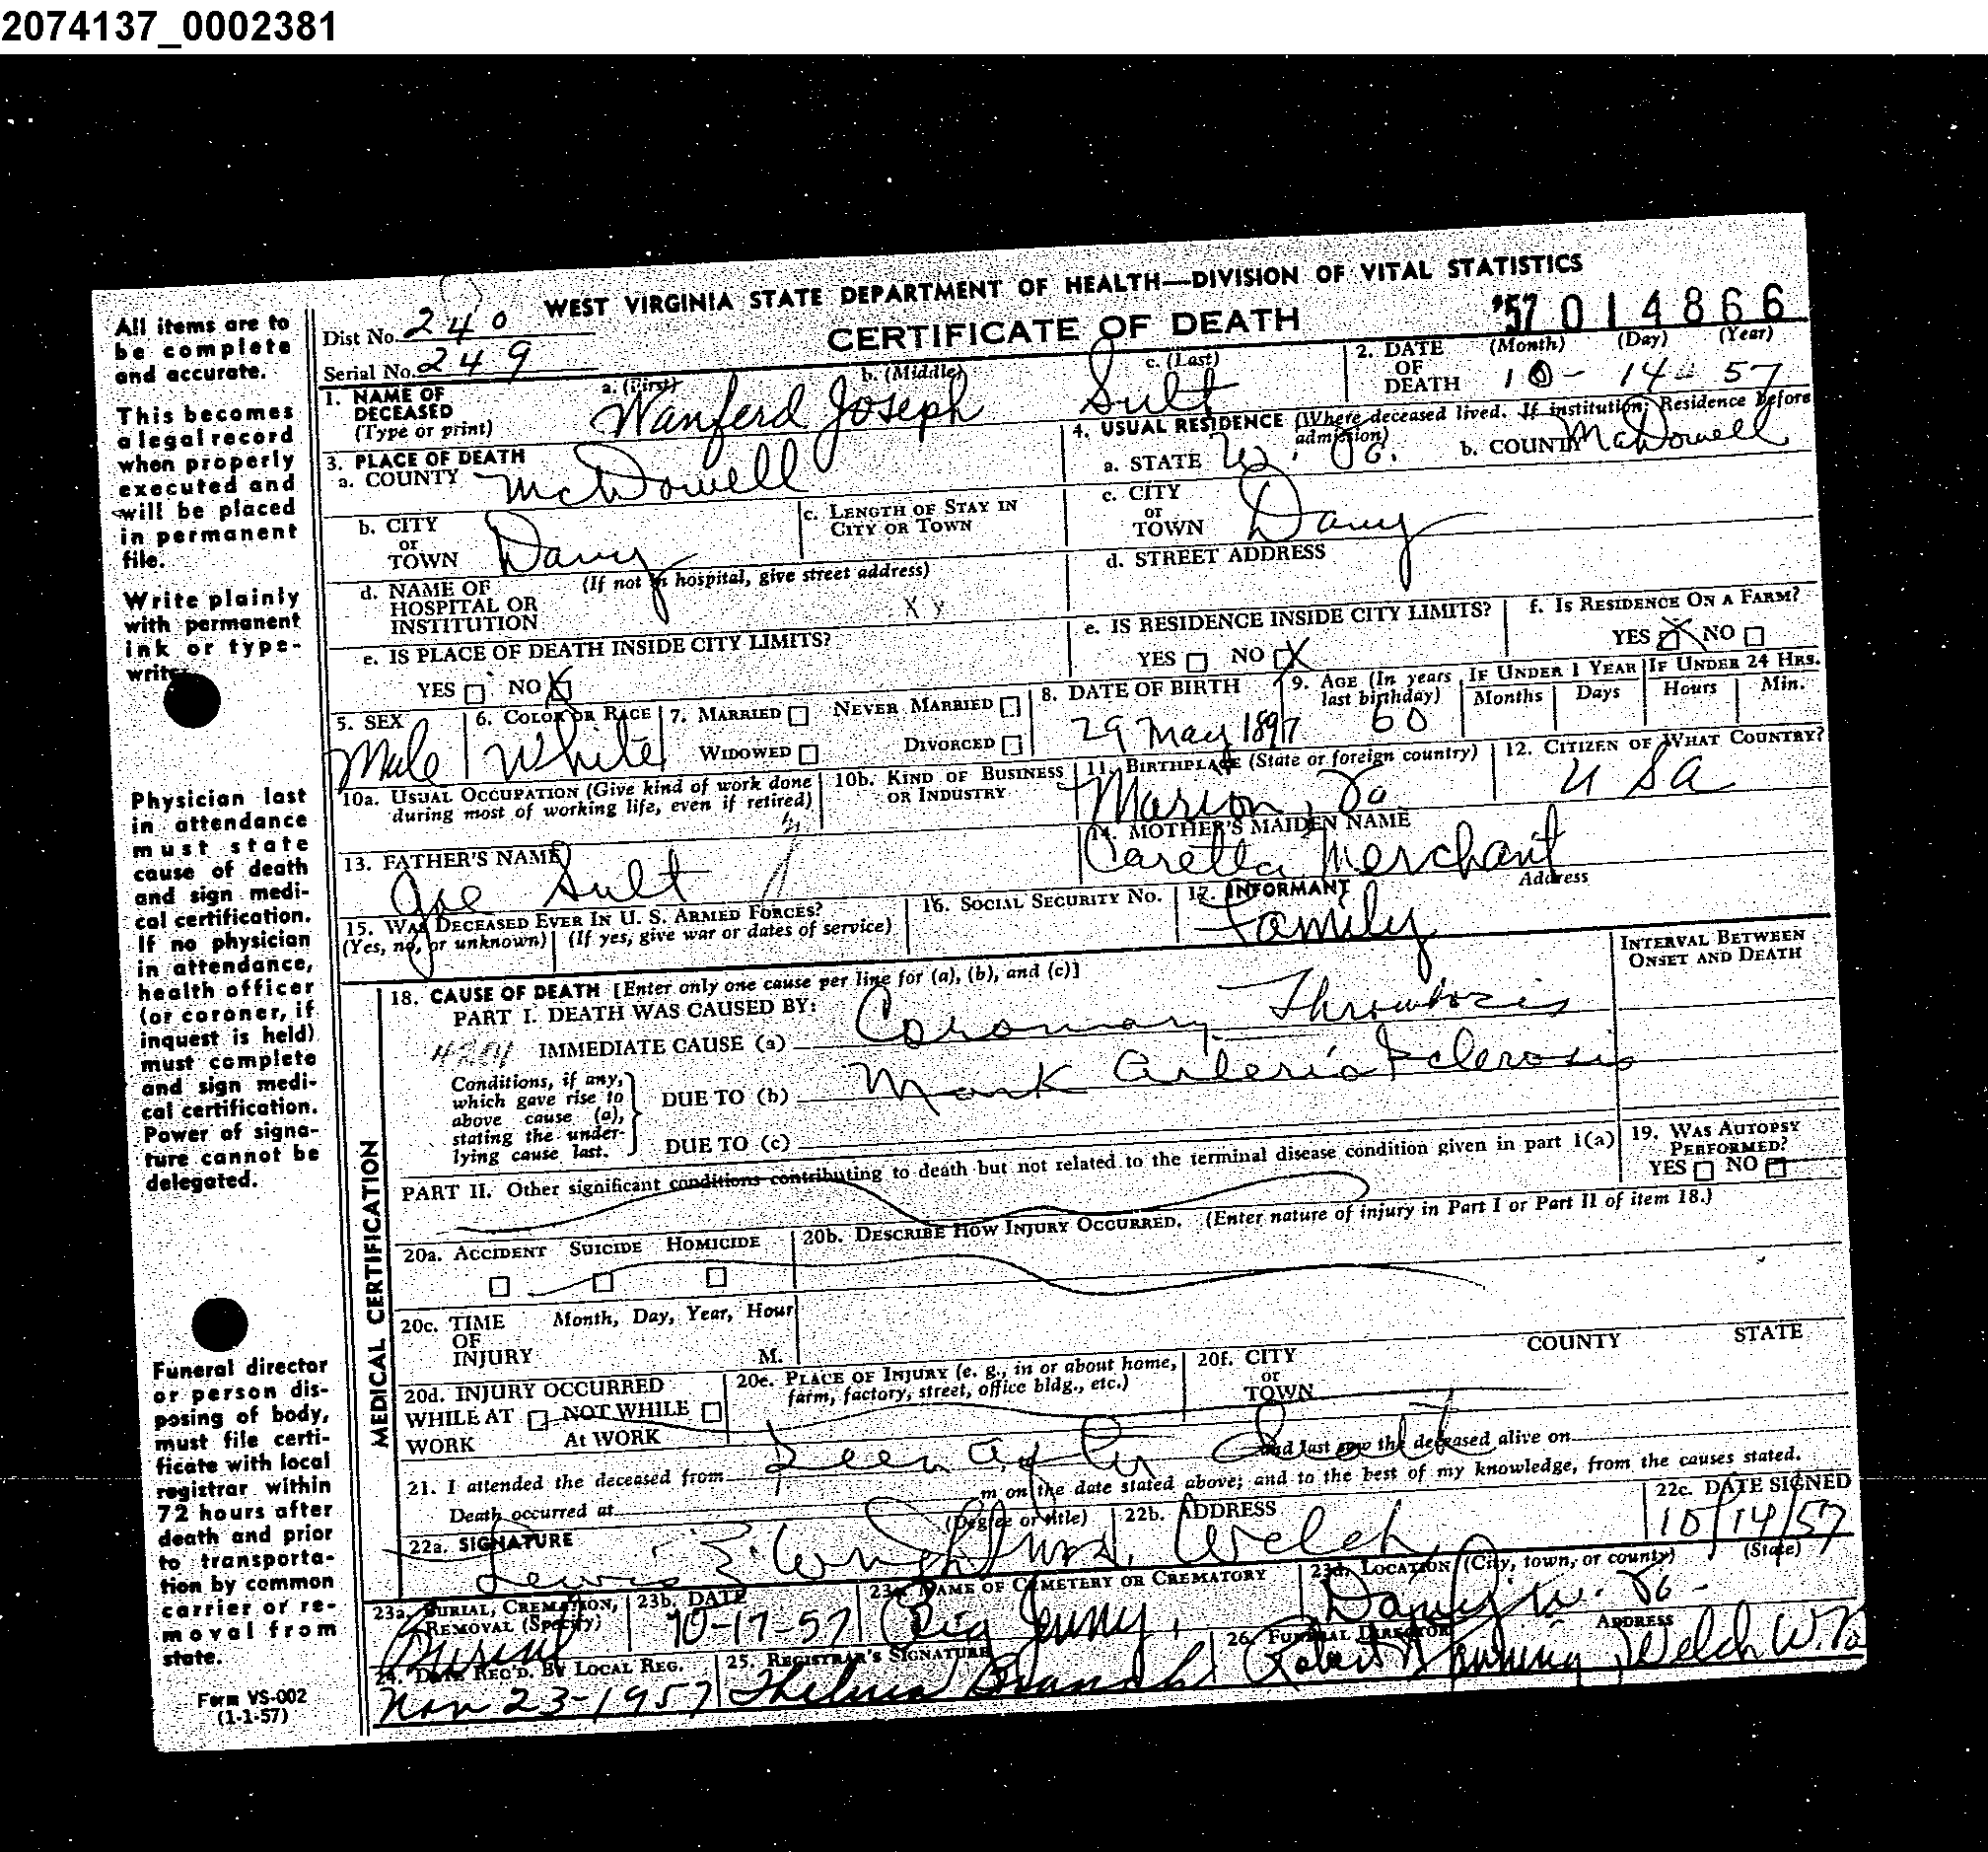 2074137_0002381
WEST VIRGINIA STATE DEPARTMENT OF HEALTH—DIVISION OF VITAL STATISTICS
CERTIFICATE OF DEATH
'57 014866
Dist No. 240
Serial No. 249
All items are to
be complete
and accurate.
This becomes
a legal record
when properly
executed and
will be placed
in permanent
file.
Write plainly
with permanent
ink or type-
write
Physician last
in attendance
must state
cause of death
and sign medi-
cal certification.
If no physician
in attendance,
health officer
(or coroner, if
inquest is held)
must complete
and sign medi-
cal certification.
Power of signa-
ture cannot be
delegated.
Funeral director
or person dis-
posing of body,
must file certi-
ficate with local
registrar within
72 hours after
death and prior
to transporta-
tion by common
carrier or re-
moval from
state.
Form VS-002
(1-1-57)
1. NAME OF DECEASED (Type or print) a. (First) b. (Middle) c. (Last)
Wanferd Joseph Sult
2. DATE OF DEATH (Month) (Day) (Year)
10-14-57
3. PLACE OF DEATH
a. COUNTY McDowell
b. CITY or TOWN Davy
c. LENGTH OF STAY IN CITY OR TOWN
d. NAME OF HOSPITAL OR INSTITUTION (If not in hospital, give street address)
X y
e. IS PLACE OF DEATH INSIDE CITY LIMITS?
YES NO X
4. USUAL RESIDENCE (Where deceased lived. If institution: Residence before admission)
a. STATE W. Va. b. COUNTY McDowell
c. CITY or TOWN Davy
d. STREET ADDRESS
e. IS RESIDENCE INSIDE CITY LIMITS?
YES NO X
f. IS RESIDENCE ON A FARM?
YES X NO
5. SEX Male
6. COLOR OR RACE White
7. MARRIED NEVER MARRIED
WIDOWED DIVORCED
8. DATE OF BIRTH 29 May 1897
9. AGE (In years last birthday) 60
IF UNDER 1 YEAR Months Days
IF UNDER 24 HRS. Hours Min.
10a. USUAL OCCUPATION (Give kind of work done during most of working life, even if retired)
10b. KIND OF BUSINESS OR INDUSTRY
11. BIRTHPLACE (State or foreign country) Marion, Va.
12. CITIZEN OF WHAT COUNTRY? USA
13. FATHER'S NAME Joe Sult
14. MOTHER'S MAIDEN NAME Caretta Merchant
15. WAS DECEASED EVER IN U. S. ARMED FORCES?
(Yes, no, or unknown) (If yes, give war or dates of service)
16. SOCIAL SECURITY NO.
17. INFORMANT Address
Family
MEDICAL CERTIFICATION
18. CAUSE OF DEATH [Enter only one cause per line for (a), (b), and (c)]
INTERVAL BETWEEN ONSET AND DEATH
PART I. DEATH WAS CAUSED BY:
IMMEDIATE CAUSE (a) Coronary Thrombosis
Conditions, if any, which gave rise to above cause (a), stating the underlying cause last.
DUE TO (b) Mark Arterio Sclerosis
DUE TO (c)
PART II. Other significant conditions contributing to death but not related to the terminal disease condition given in part I(a)
19. WAS AUTOPSY PERFORMED?
YES NO
20a. ACCIDENT SUICIDE HOMICIDE
20b. DESCRIBE HOW INJURY OCCURRED. (Enter nature of injury in Part I or Part II of item 18.)
20c. TIME OF INJURY Month, Day, Year, Hour M.
20d. INJURY OCCURRED
WHILE AT WORK NOT WHILE At WORK
20e. PLACE OF INJURY (e. g., in or about home, farm, factory, street, office bldg., etc.)
20f. CITY or TOWN COUNTY STATE
21. I attended the deceased from Seen after Death and last saw the deceased alive on
Death occurred at m on the date stated above; and to the best of my knowledge, from the causes stated.
22a. SIGNATURE (Degree or title)
Lewis E. Wright M.D.
22b. ADDRESS Welch
22c. DATE SIGNED 10/14/57
23a. BURIAL, CREMATION, REMOVAL (Specify) Burial
23b. DATE 10-17-57
23c. NAME OF CEMETERY OR CREMATORY Big Jenny,
23d. LOCATION (City, town, or county) (State) Davy, W. Va -
24. DATE REC'D. BY LOCAL REG. Nov 23-1957
25. REGISTRAR'S SIGNATURE Thelma
26. FUNERAL DIRECTOR ADDRESS
Robert Fanning, Welch W.Va